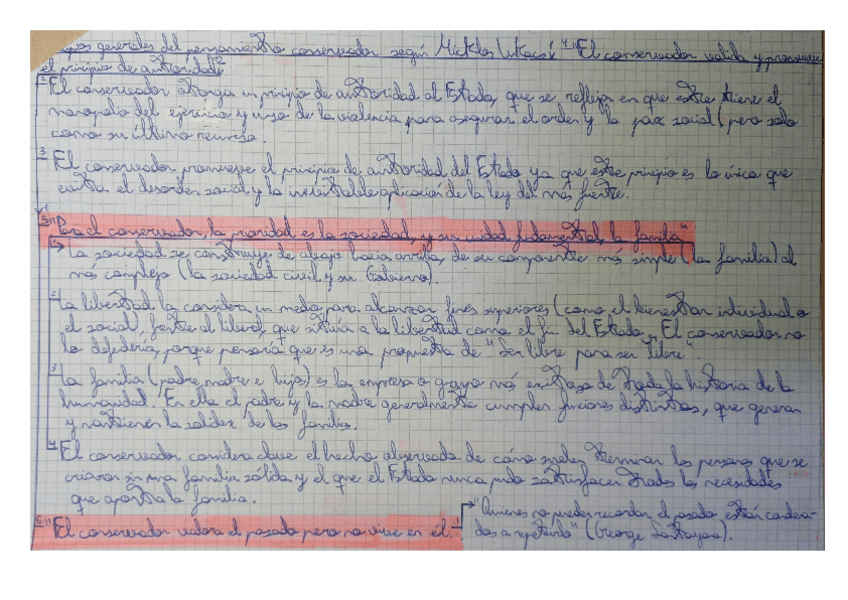 generales del pensamiento conservador según Micklos Lukacs: 4."El conservador valida y promueve
el principio de autoridad"
El conservador otorga un principio de autoridad al Estado, que se refleja en que este tiene el
monopolio del ejercicio y uso de la violencia para asegurar el orden y la paz social, pero solo
como su último recurso.
3 El conservador promueve el principio de autoridad del Estado ya que este principio es lo único que
evita el desorden social y la inevitable aplicación de la ley del más fuerte.
5."Para el conservador, la prioridad es la sociedad, y su unidad fundamental, la familia"
La sociedad se construye de abajo hacia arriba, de su componente más simple (la familia) al
más complejo (la sociedad civil y su Gobierno).
2 La libertad la considera un medio para alcanzar fines superiores (como el bienestar individual o
el social), frente al liberal que sitúa a la libertad como el fin del Estado. El conservador no
la defendería, porque pensaría que es una propuesta de "Ser libre para ser libre".
3 La familia (padre, madre e hijos) es la empresa o grupo más exitosa de toda la historia de la
humanidad. En ella el padre y la madre generalmente cumplen funciones distintas, que generan
y mantienen la solidez de las familias.
4 El conservador considera clave el hecho observado de cómo suelen terminar las personas que se
criaron sin una familia sólida y el que el Estado nunca pudo satisfacer todas las necesidades
que aporta la familia.
6."El conservador valora el pasado pero no vive en él." 1 "Quienes no pueden recordar el pasado están condena-
dos a repetirlo" (George Santayana).